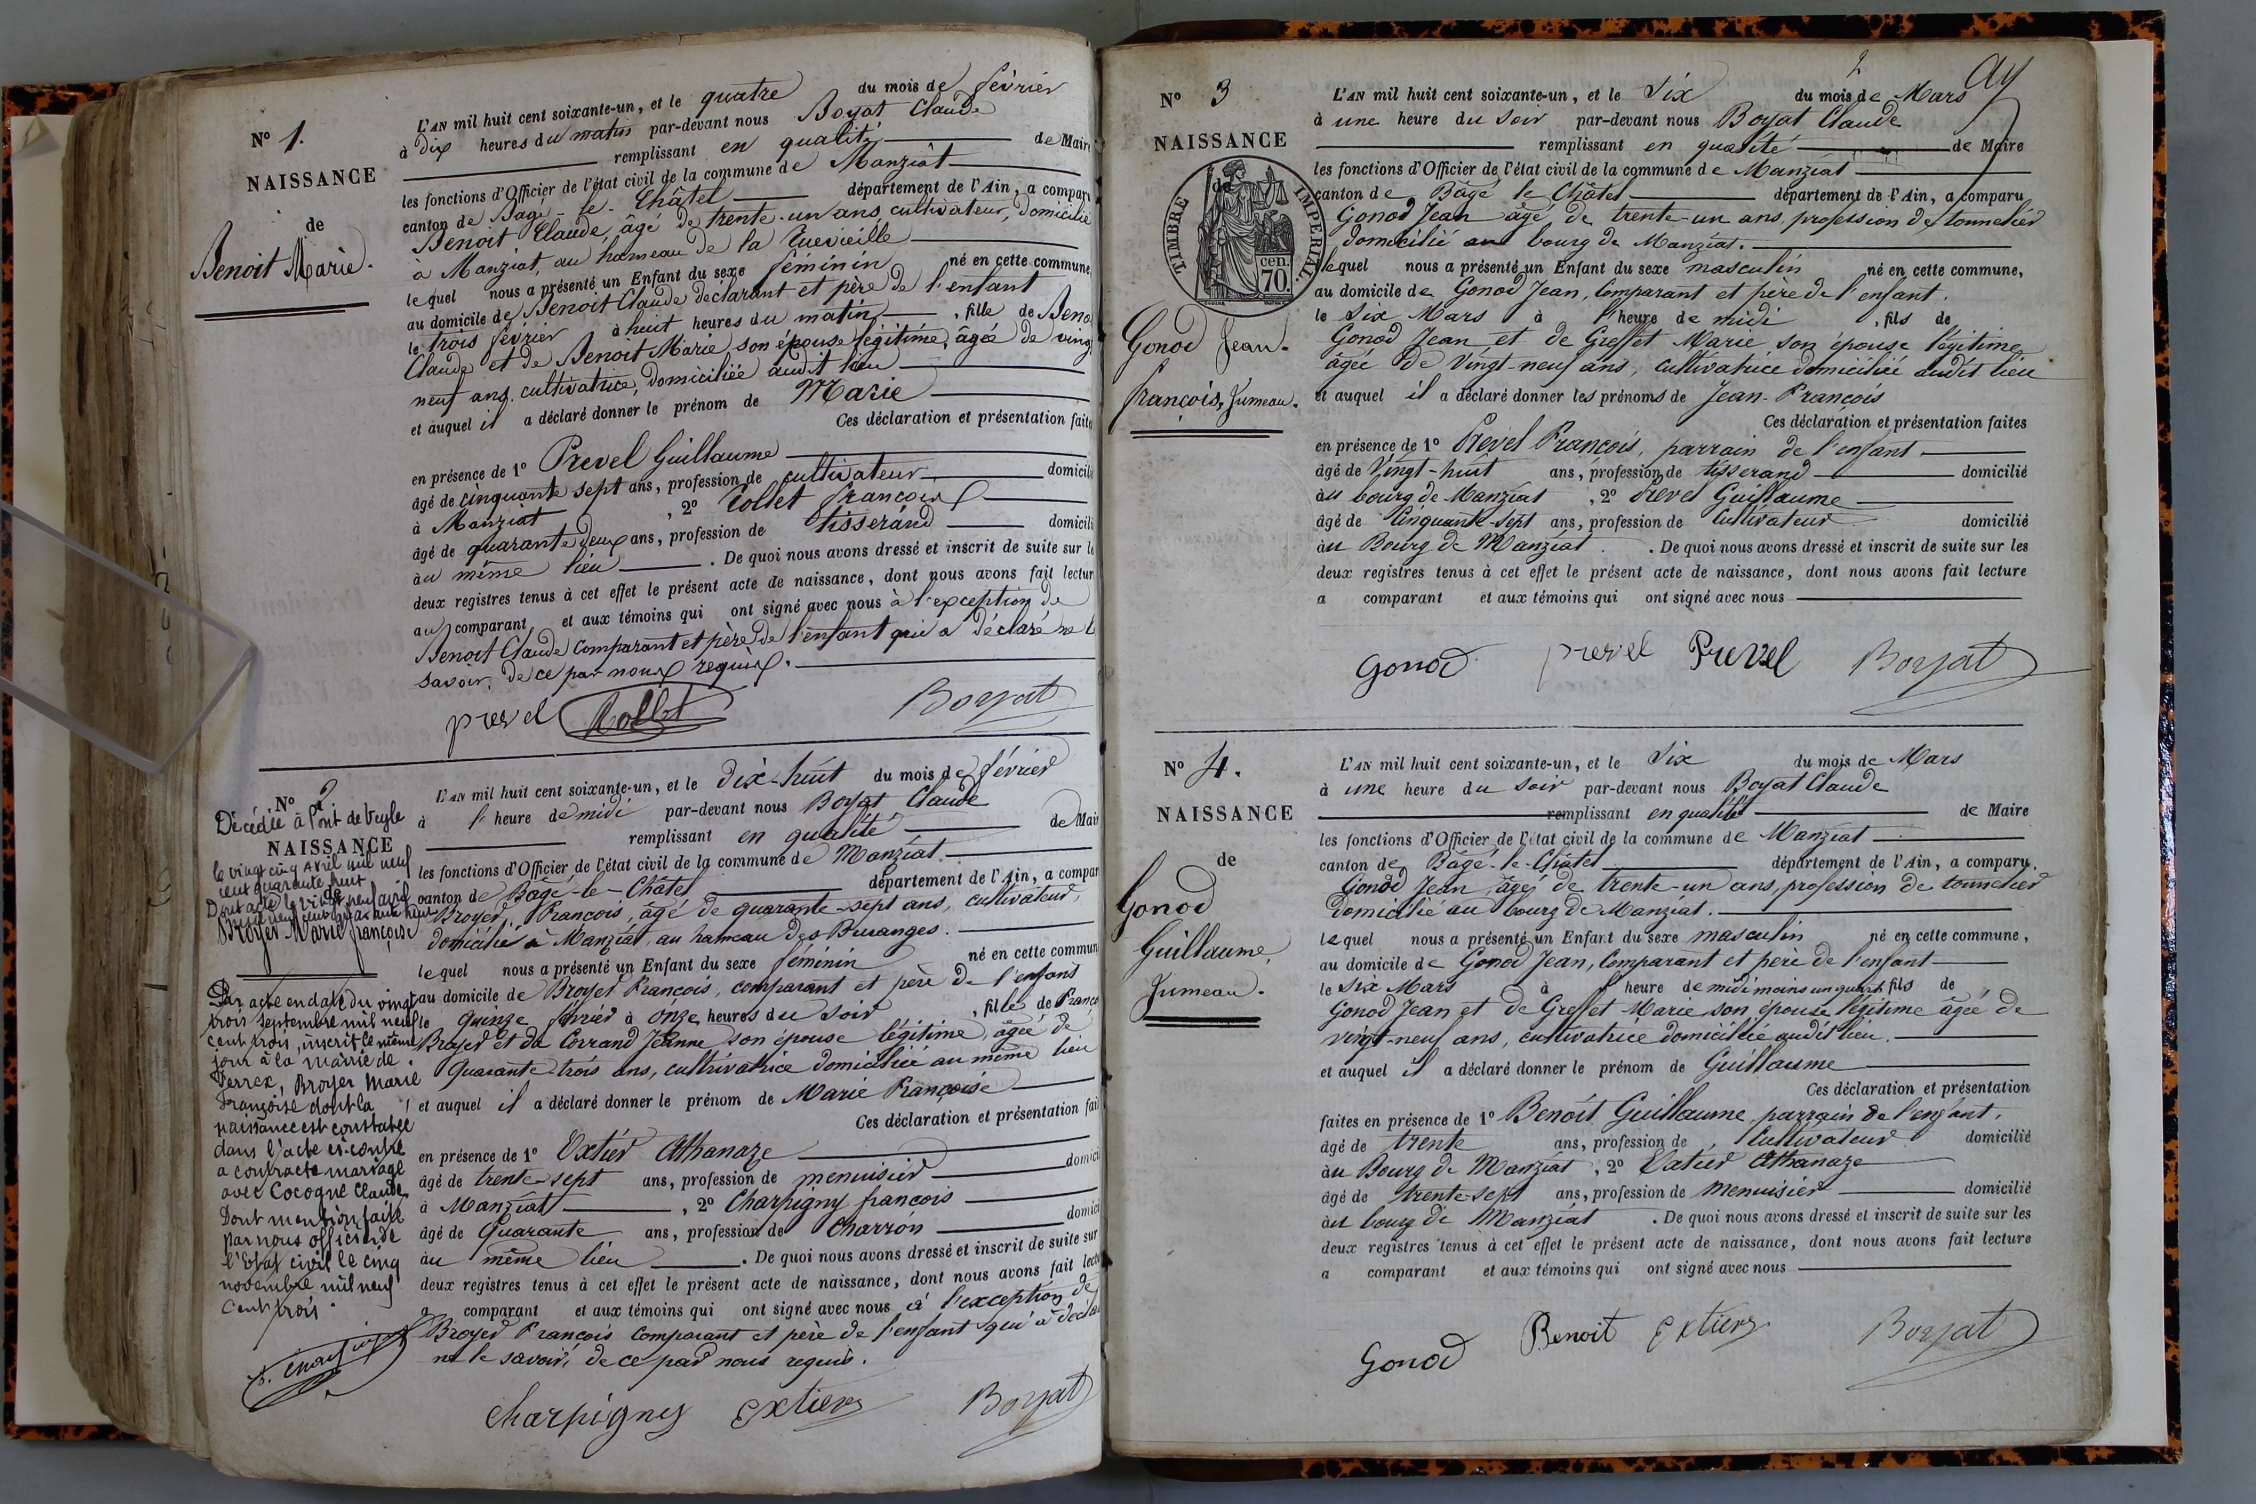 N° 1.
NAISSANCE
de
Benoit Marie.
L'AN mil huit cent soixante-un, et le quatre du mois de février
à dix heures du matin par-devant nous Boyat Claude
remplissant en qualité de Maire
les fonctions d'Officier de l'état civil de la commune de Manziat
canton de Bagé-le-Châtel département de l'Ain, a comparu
Benoit Claude, âgé de trente-un ans, cultivateur, domicilié
à Manziat, au hameau de la
lequel nous a présenté un Enfant du sexe féminin né en cette commune,
au domicile de Benoit Claude déclarant et père de l'enfant
le trois février à huit heures du matin, fille de Beno
Claude et de Benoit Marie son épouse légitime, âgée de ving
neuf ans, cultivatrice, domiciliée audit lieu
et auquel il a déclaré donner le prénom de Marie
Ces déclaration et présentation faites
en présence de 1° Prevel Guillaume
âgé de cinquante sept ans, profession de cultivateur domicilié
à Manziat, 2° Collet François
âgé de quarante deux ans, profession de tisserand domicili
au même lieu. De quoi nous avons dressé et inscrit de suite sur le
deux registres tenus à cet effet le présent acte de naissance, dont nous avons fait lectur
au comparant et aux témoins qui ont signé avec nous à l'exception de
Benoit Claude comparant et père de l'enfant qui a déclaré ne le
savoir, de ce par nous requis.
prevel Collet Boyat
N° 2
Décédée à Pont de Veyle
NAISSANCE
le vingt cinq avril mil neuf
cent quarante huit
de
Dont acte le vingt neuf avril
mil neuf cent quarante huit
Broyer Marie françoise
Par acte en date du vingt
trois septembre mil neuf
cent trois, inscrit le même
jour à la mairie de
Perrex, Broyer Marie
Françoise dont la
naissance est constatée
dans l'acte ci-contre
a contracté mariage
avec Cocogne Claude
Dont mention faite
par nous officier de
l'Etat civil le cinq
novembre mil neuf
cent trois.
L'AN mil huit cent soixante-un, et le dix-huit du mois de février
à l' heure de midi par-devant nous Boyat Claude
remplissant en qualité de Mair
les fonctions d'Officier de l'état civil de la commune de Manziat
canton de Bagé-le-Châtel département de l'Ain, a compar
Broyer, François, âgé de quarante-sept ans, cultivateur,
domicilié à Manziat, au hameau des Buranges.
lequel nous a présenté un Enfant du sexe féminin né en cette commun
au domicile de Broyer François, comparant et père de l'enfant
le quinze février à onze heures du soir, fille de Franco
Broyer et de Corrand Jeanne son épouse légitime, âgée de
Quarante-trois ans, cultivatrice domiciliée au même lieu
et auquel il a déclaré donner le prénom de Marie Françoise
Ces déclaration et présentation fai
en présence de 1° Extier Athanaze
âgé de trente-sept ans, profession de menuisier domici
à Manziat, 2° Charpigny françois
âgé de Quarante ans, profession de Charron domici
au même lieu. De quoi nous avons dressé et inscrit de suite sur
deux registres tenus à cet effet le présent acte de naissance, dont nous avons fait lectu
a comparant et aux témoins qui ont signé avec nous à l'exception de
Broyer François comparant et père de l'enfant qui a décla
ne le savoir, de ce par nous requis.
Charpigny Extier Boyat
2
N° 3
NAISSANCE
de
TIMBRE IMPERIAL.
cen.
70.
Gonod Jean-
françois, Jumeau.
L'AN mil huit cent soixante-un, et le Six du mois de Mars
à une heure du soir par-devant nous Boyat Claude
remplissant en qualité de Maire
les fonctions d'Officier de l'état civil de la commune de Manziat
canton de Bâgé le Châtel département de l'Ain, a comparu
Gonod Jean âgé de trente-un ans, profession de tonnelier
domicilié au bourg de Manziat.
lequel nous a présenté un Enfant du sexe masculin né en cette commune,
au domicile de Gonod Jean, comparant et père de l'enfant.
le Six Mars à l'heure de midi, fils de
Gonod Jean et de Greffet Marie son épouse légitime
âgée de Vingt-neuf ans, cultivatrice domiciliée audit lieu
et auquel il a déclaré donner les prénoms de Jean-François
Ces déclaration et présentation faites
en présence de 1° Prevel François, parrain de l'enfant
âgé de Vingt-huit ans, profession de tisserand domicilié
au bourg de Manziat, 2° Prevel Guillaume
âgé de Cinquante-sept ans, profession de Cultivateur domicilié
au Bourg de Manziat. De quoi nous avons dressé et inscrit de suite sur les
deux registres tenus à cet effet le présent acte de naissance, dont nous avons fait lecture
a comparant et aux témoins qui ont signé avec nous
Gonod prevel Prevel Boyat
N° 4.
NAISSANCE
de
Gonod
Guillaume,
Jumeau.
L'AN mil huit cent soixante-un, et le Six du mois de Mars
à une heure du soir par-devant nous Boyat Claude
remplissant en qualité de Maire
les fonctions d'Officier de l'état civil de la commune de Manziat
canton de Bâgé-le-Châtel département de l'Ain, a comparu
Gonod Jean, âgé de trente-un ans, profession de tonnelier
domicilié au bourg de Manziat.
lequel nous a présenté un Enfant du sexe masculin né en cette commune,
au domicile de Gonod Jean, Comparant et père de l'enfant
le Six Mars à l' heure de midi moins un quart fils de
Gonod Jean et de Greffet Marie son épouse légitime âgée de
vingt-neuf ans, cultivatrice domiciliée audit lieu.
et auquel il a déclaré donner le prénom de Guillaume
Ces déclaration et présentation
faites en présence de 1° Benoit Guillaume parrain de l'enfant,
âgé de trente ans, profession de Cultivateur domicilié
au Bourg de Manziat, 2° Extier Athanaze
âgé de trente-sept ans, profession de Menuisier domicilié
au bourg de Manziat. De quoi nous avons dressé et inscrit de suite sur les
deux registres tenus à cet effet le présent acte de naissance, dont nous avons fait lecture
a comparant et aux témoins qui ont signé avec nous
Gonod Benoit Extier Boyat